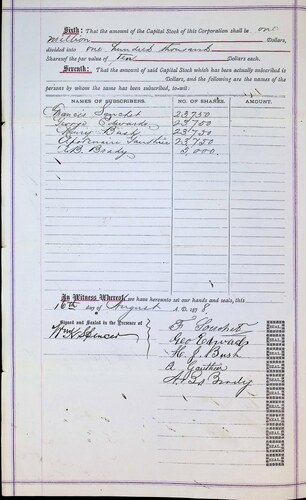 Sixth: That the amount of the Capital Stock of this Corporation shall be one
Million Dollars,
divided into one hundred thousand
Shares of the par value of ten Dollars each.
Seventh: That the amount of said Capital Stock which has been actually subscribed is
Dollars, and the following are the names of the
persons by whom the same has been subscribed, to-wit:
NAMES OF SUBSCRIBERS. NO. OF SHARES. AMOUNT.
Francis 23750
George Edwards 23750
Henry Bush 23750
Gauthier 23750
Brady 5,000
In Witness Whereof, we have hereunto set our hands and seals, this
16th day of August A. D. 1878.
Signed and Sealed in the Presence of
Wm H Spencer
F.
Geo Edwards
H. J. Bush
A Gauthier
Brady